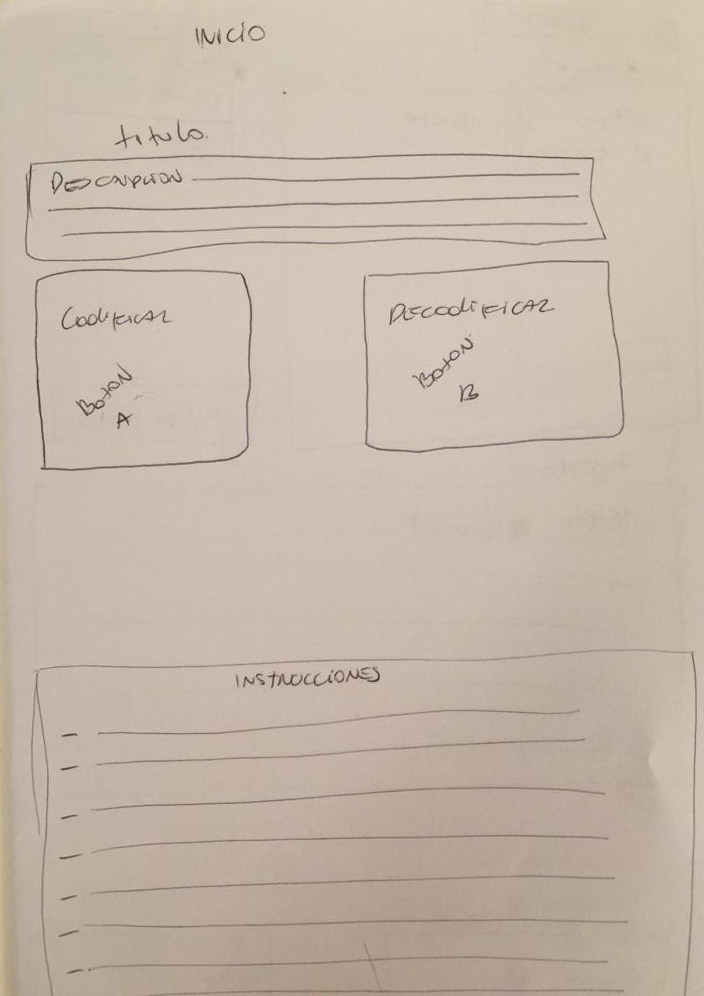 INICIO
titulo.
DESCRIPCION
Codificar
DECODIFICAR
BOTON
A
BOTON
B
INSTRUCCIONES